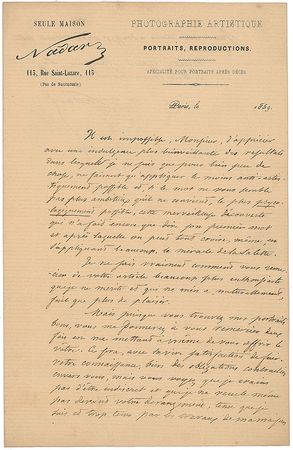 SEULE MAISON
Nadar
113, Rue Saint-Lazare, 113
(Pas de Succursale)
PHOTOGRAPHIE ARTISTIQUE
PORTRAITS, REPRODUCTIONS.
SPÉCIALITÉ POUR PORTRAITS APRÈS DÉCÈS
Paris, le 185
Il est impossible, Monsieur, d'apprécier
avec une indulgence plus bienveillante des résultats
dans lesquels je ne suis que pour bien peu de
chose, ne faisant qu'appliquer le moins anti-artis-
tiquement possible et, si le mot ne vous semble
pas plus ambitieux qu'il ne convient, le plus
possible, cette merveilleuse découverte
qui n'a fait encore que dire son premier mot
et après laquelle on peut tout croire, même en
s'appliquant beaucoup,
Je ne sais vraiment comment vous remer-
cier de votre article beaucoup plus enthousiaste
que je ne mérite et qui ne m'en a naturellement
fait que plus de plaisir.
Mais puisque vous trouvez mes portraits
bons, vous me donnerez à vous remercier deux
fois en me mettant à même de vous offrir le
vôtre. Ce sera, avec la vive satisfaction de faire
votre connaissance, bien des obligations contractées
envers vous, mais vous voyez que je crains
pas d'être indiscret et que je ne recule même
pas devant votre dérangement, tenu que je
suis et trop tenu par les travaux de ma maison